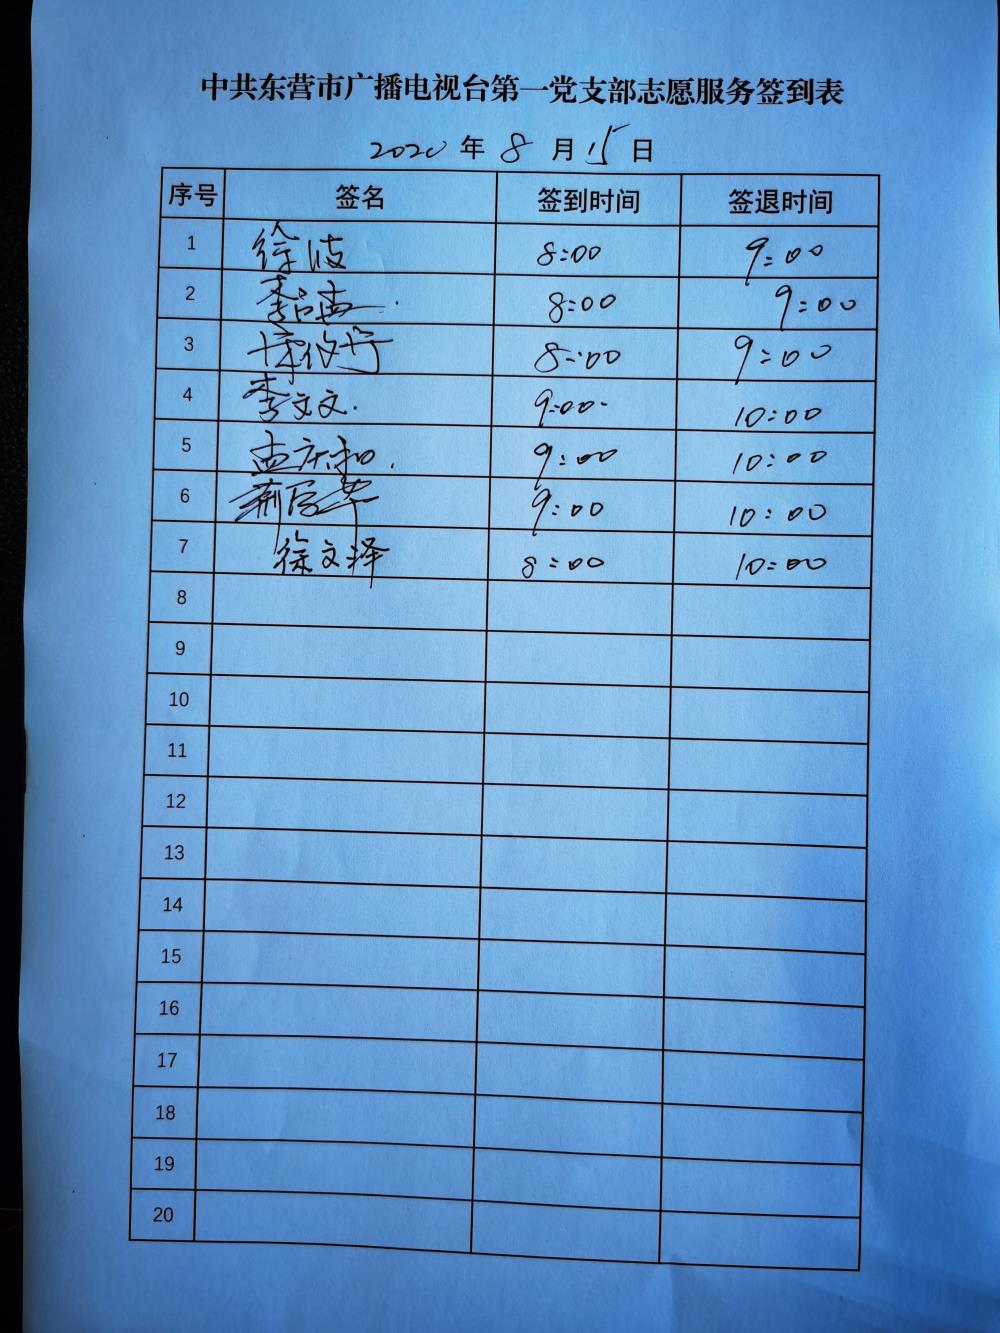 中共东营市广播电视台第一党支部志愿服务签到表
2020 年 8 月 15 日
序号 签名 签到时间 签退时间
1 徐波 8:00 9:00
2 李 8:00 9:00
3 8:00 9:00
4 李文文. 9:00 10:00
5 孟庆和. 9:00 10:00
6 荆 9:00 10:00
7 徐文泽 8:00 10:00
8
9
10
11
12
13
14
15
16
17
18
19
20